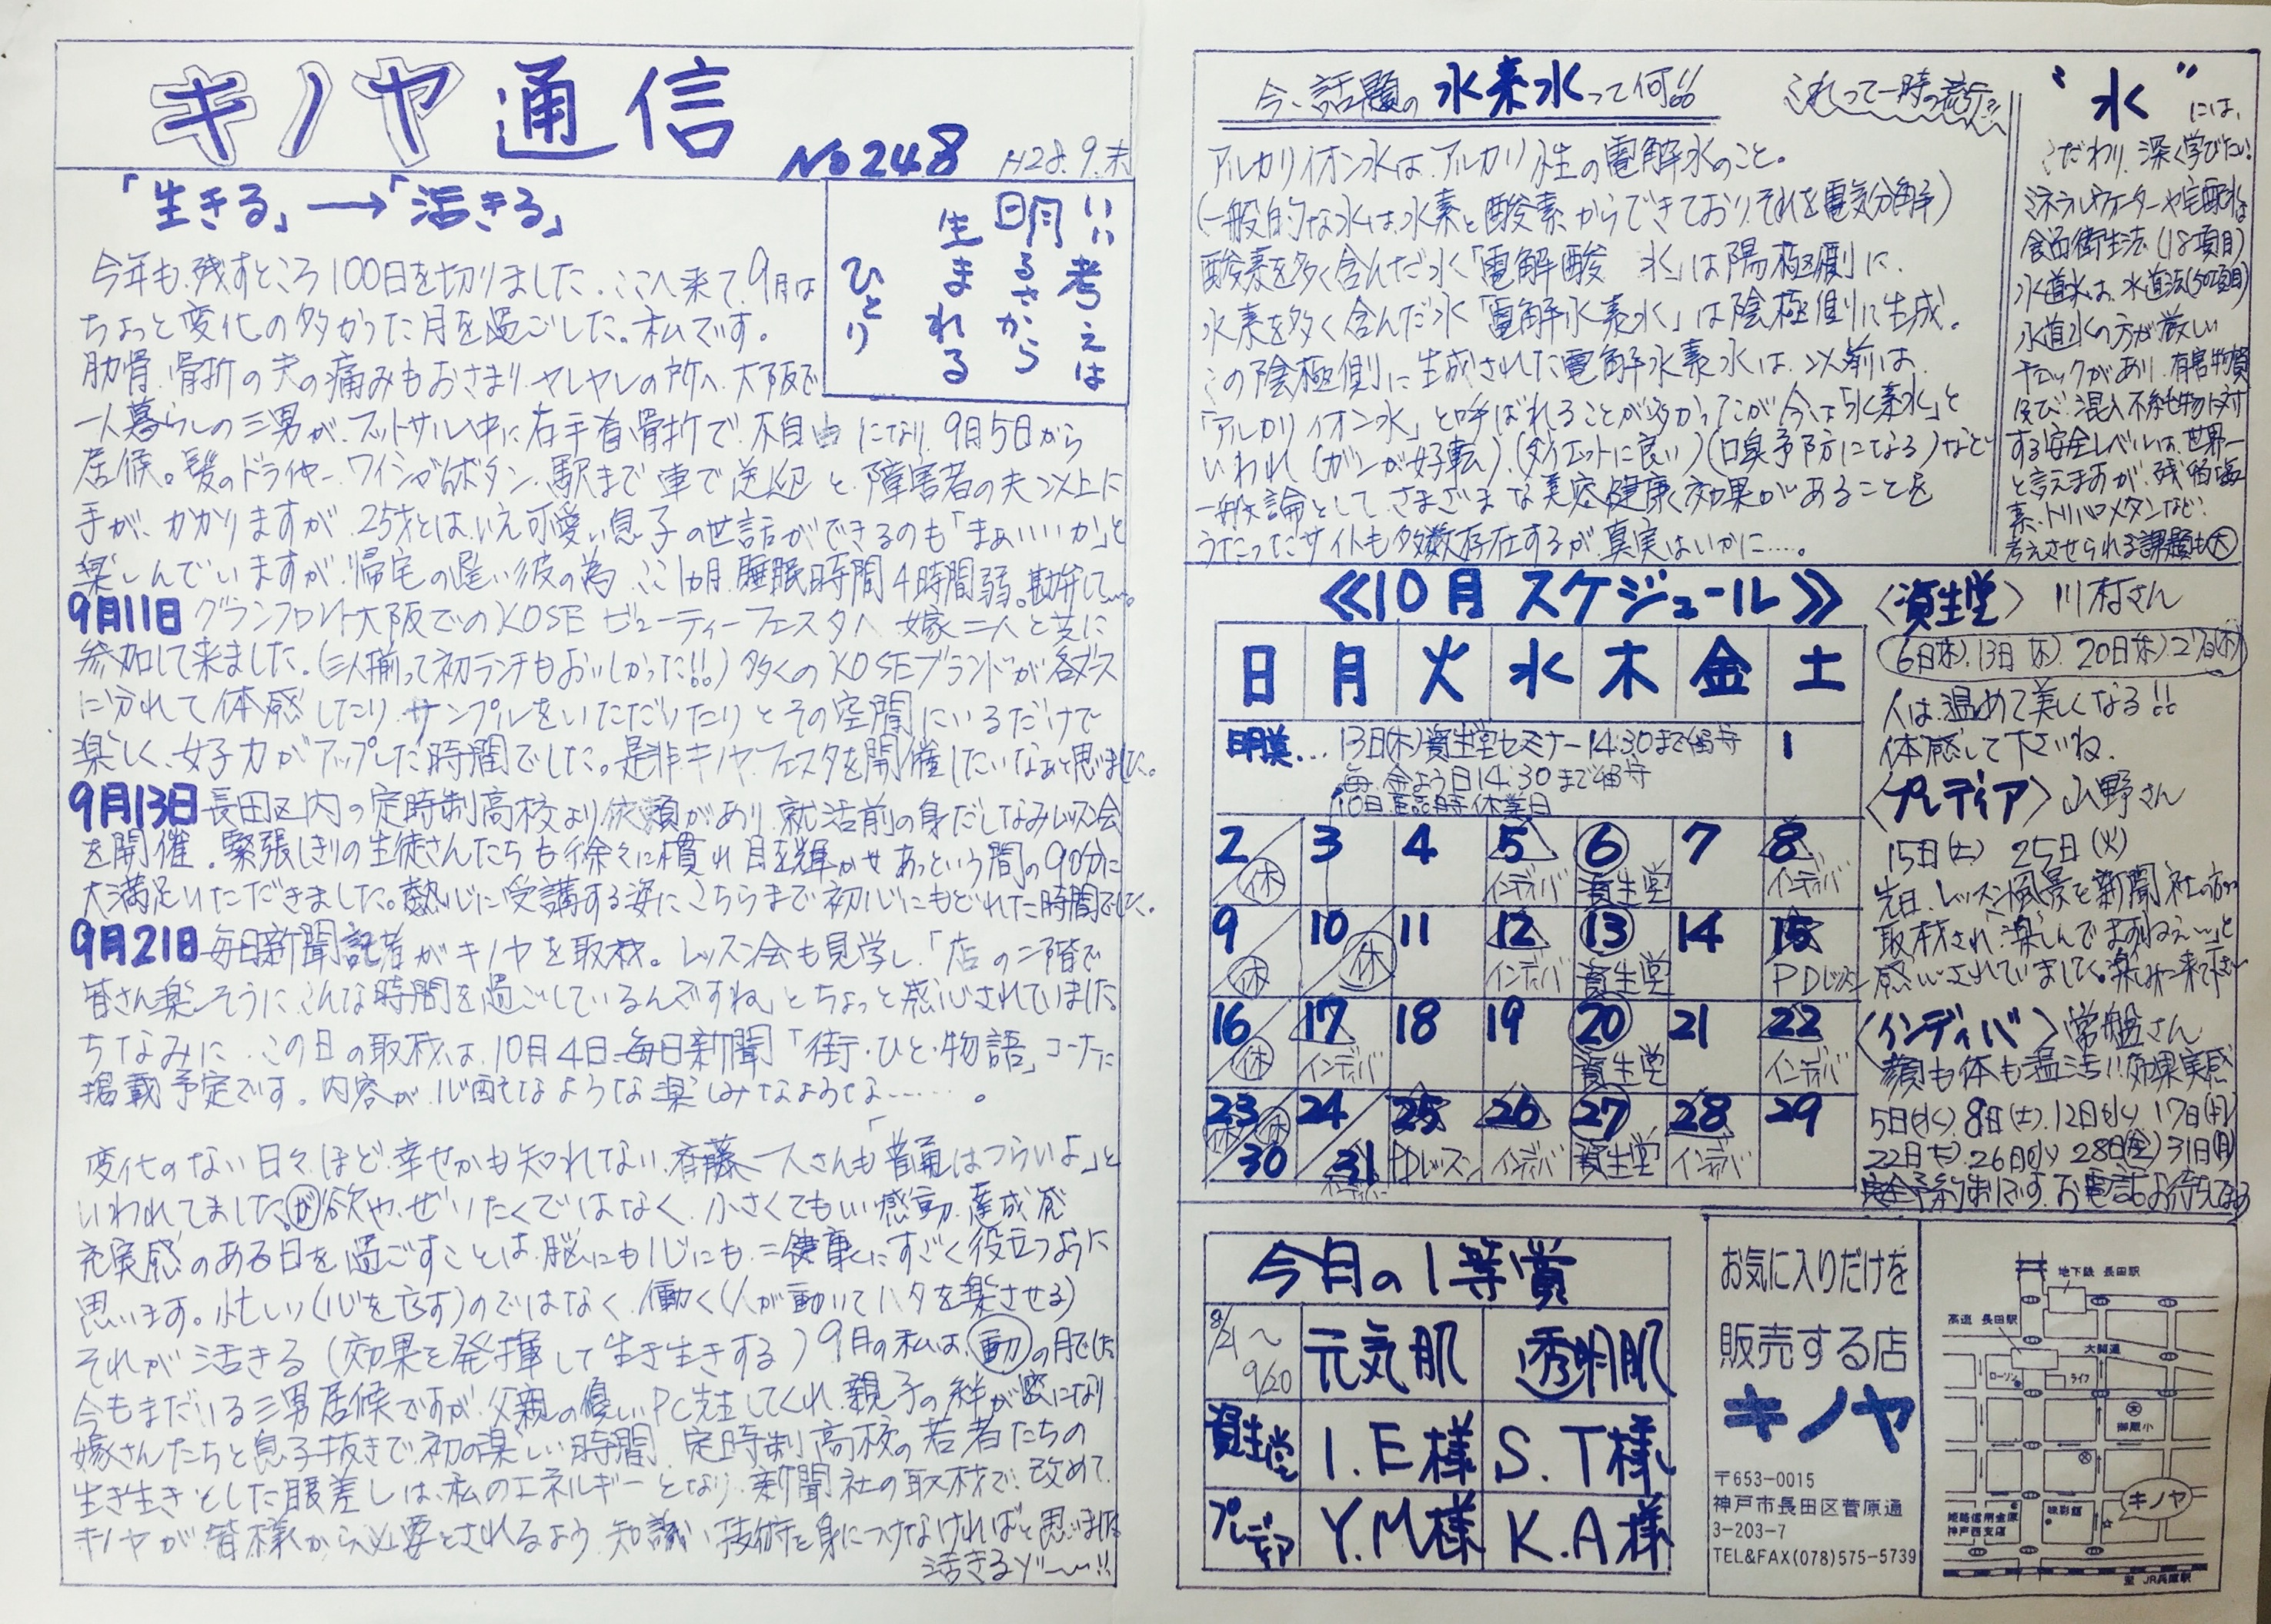 キノヤ通信
No248 H28.9.末
「生きる」→「活きる」
いい考えは
明るさから
生まれる
ひとり
今年も、残すところ100日を切りました。ここへ来て、9月は
ちょっと変化の多かった月を過ごした。私です。
肋骨、骨折の夫の痛みもおさまり、ヤレヤレの所へ、大阪で
一人暮らしの三男が、フットサル中に右手首骨折で、不自由になり、9月5日から
居候。髪のドライヤー、ワイシャツのボタン、駅まで車で送迎と、障害者の夫以上に
手が、かかりますが、25才とはいえ可愛い息子の世話ができるのも「まぁいいか」と
楽しんでいますが、帰宅の遅い彼の為、ここ1カ月、睡眠時間4時間弱。勘弁して〜。
9月11日 グランフロント大阪でのKOSEビューティーフェスタへ 嫁二人と共に
参加して来ました。(三人揃って初ランチもおいしかった!!)多くのKOSEブランドが各ブース
に分れて体感したり、サンプルをいただいたりとその空間にいるだけで
楽しく、女子力がアップした時間でした。是非、キノヤフェスタを開催したいなぁと思いました。
9月13日 長田区内の定時制高校より依頼があり、就活前の身だしなみレッスン会
を開催。緊張しきりの生徒さんたちも徐々に慣れ目を輝かせあっという間の90分に
大満足いただきました。熱心に受講する姿にこちらまで初心にもどれた時間でした。
9月21日 毎日新聞記者がキノヤを取材。レッスン会も見学し、「店の二階で
皆さん楽しそうにこんな時間を過ごしているんですね」とちょっと感心されていました。
ちなみに、この日の取材は、10月4日毎日新聞「街・ひと・物語」コーナーに
掲載予定です。内容が、心配なような楽しみなような……。
変化のない日々ほど、幸せかも知れない、斉藤一人さんも「普通はつらいよ」と
いわれてました。が欲や、ぜいたくではなく、小さくてもいい感動、達成感
充実感のある日を過ごすことは、脳にも心にも=健康にすごく役立つように
思います。忙しい(心を亡す)のではなく、働く(人が動いてハタを楽させる)
それが活きる(効果を発揮して生き生きする)9月の私は、動の月でした
今もまだいる三男居候ですが、父親の優しいPC先生してくれ、親子の絆が密になり
嫁さんたちと息子抜きで初の楽しい時間、定時制高校の若者たちの
生き生きとした眼差しは、私のエネルギーとなり、新聞社の取材で、改めて、
キノヤが皆様から必要とされるよう、知識、技術を身につけなければと思いました。
活きるゾ〜!!
今、話題の水素水って何!! これって一時の流行!?
アルカリイオン水は、アルカリ性の電解水のこと。
(一般的な水は、水素と酸素からできており、それを電気分解)
酸素を多く含んだ水「電解酸 水」は陽極側に、
水素を多く含んだ水「電解水素水」は陰極側に生成。
この陰極側に生成された電解水素水は、以前は、
「アルカリイオン水」と呼ばれることが多かったが今は「水素水」と
いわれ(ガンが好転)、(ダイエットに良い)(口臭予防になる)など
一般論として、さまざまな美容、健康、効果があることを
うたったサイトも多数存在するが、真実はいかに……。
“水”には、
こだわり、深く学びたい!
ミネラルウォーターや宅配水は
食品衛生法(18項目)
水道水は、水道法(50項目)
水道水の方が厳しい
チェックがあり、有害物質
及び、混入不純物に対
する安全レベルは、世界一
と言えますが、残留塩
素、トリハロメタンなど、
考えさせられる課題も大
≪10月 スケジュール≫
日 月 火 水 木 金 土
明美… 13日(木)資生堂セミナー14:30まで留守 1
毎、金よう日14:30まで留守
10日 電話時休業日
2 3 4 5 6 7 8
休 インディバ 資生堂 インディバ
9 10 11 12 13 14 15
休 休 インディバ 資生堂 PDレッスン
16 17 18 19 20 21 22
休 インディバ 資生堂 インディバ
23 24 25 26 27 28 29
休 休 30 31 PDレッスン インディバ 資生堂 インディバ
インディバ
〈資生堂〉川村さん
6日(木)、13日(木)、20日(木)、27日(木)
人は、温めて美しくなる!!
体感して下さいね。
〈プレディア〉山野さん
15日(土) 25日(火)
先日、レッスン風景を新聞社の方が
取材され「楽しんでますねぇ〜」と
感心されていました。楽しみに来て下さい
〈インディバ〉常盤さん
顔も体も温活!!効果実感
5日(水)、8日(土)、12日(水)、17日(月)
22日(土)、26日(水)、28日(金)、31日(月)
完全予約制です。お電話お待ちしてます
今月の1等賞
8/21〜9/20 元気肌 透明肌
資生堂 I.E様 S.T様
プレディア Y.M様 K.A様
お気に入りだけを
販売する店
キノヤ
〒653-0015
神戸市長田区菅原通
3-203-7
TEL&FAX(078)575-5739
地下鉄 長田駅
高速 長田駅
大開通
ローソン
ライフ
文
御蔵小
キノヤ
姫路信用金庫
神戸西支店
至 JR兵庫駅